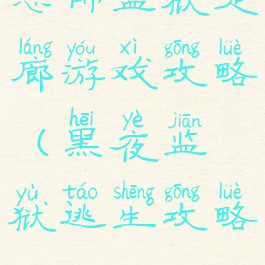 láng yóu xì gōng lüè
廊游戏攻略
hēi yè jiān
(黑夜监
yù táo shēng gōng lüè
狱逃生攻略